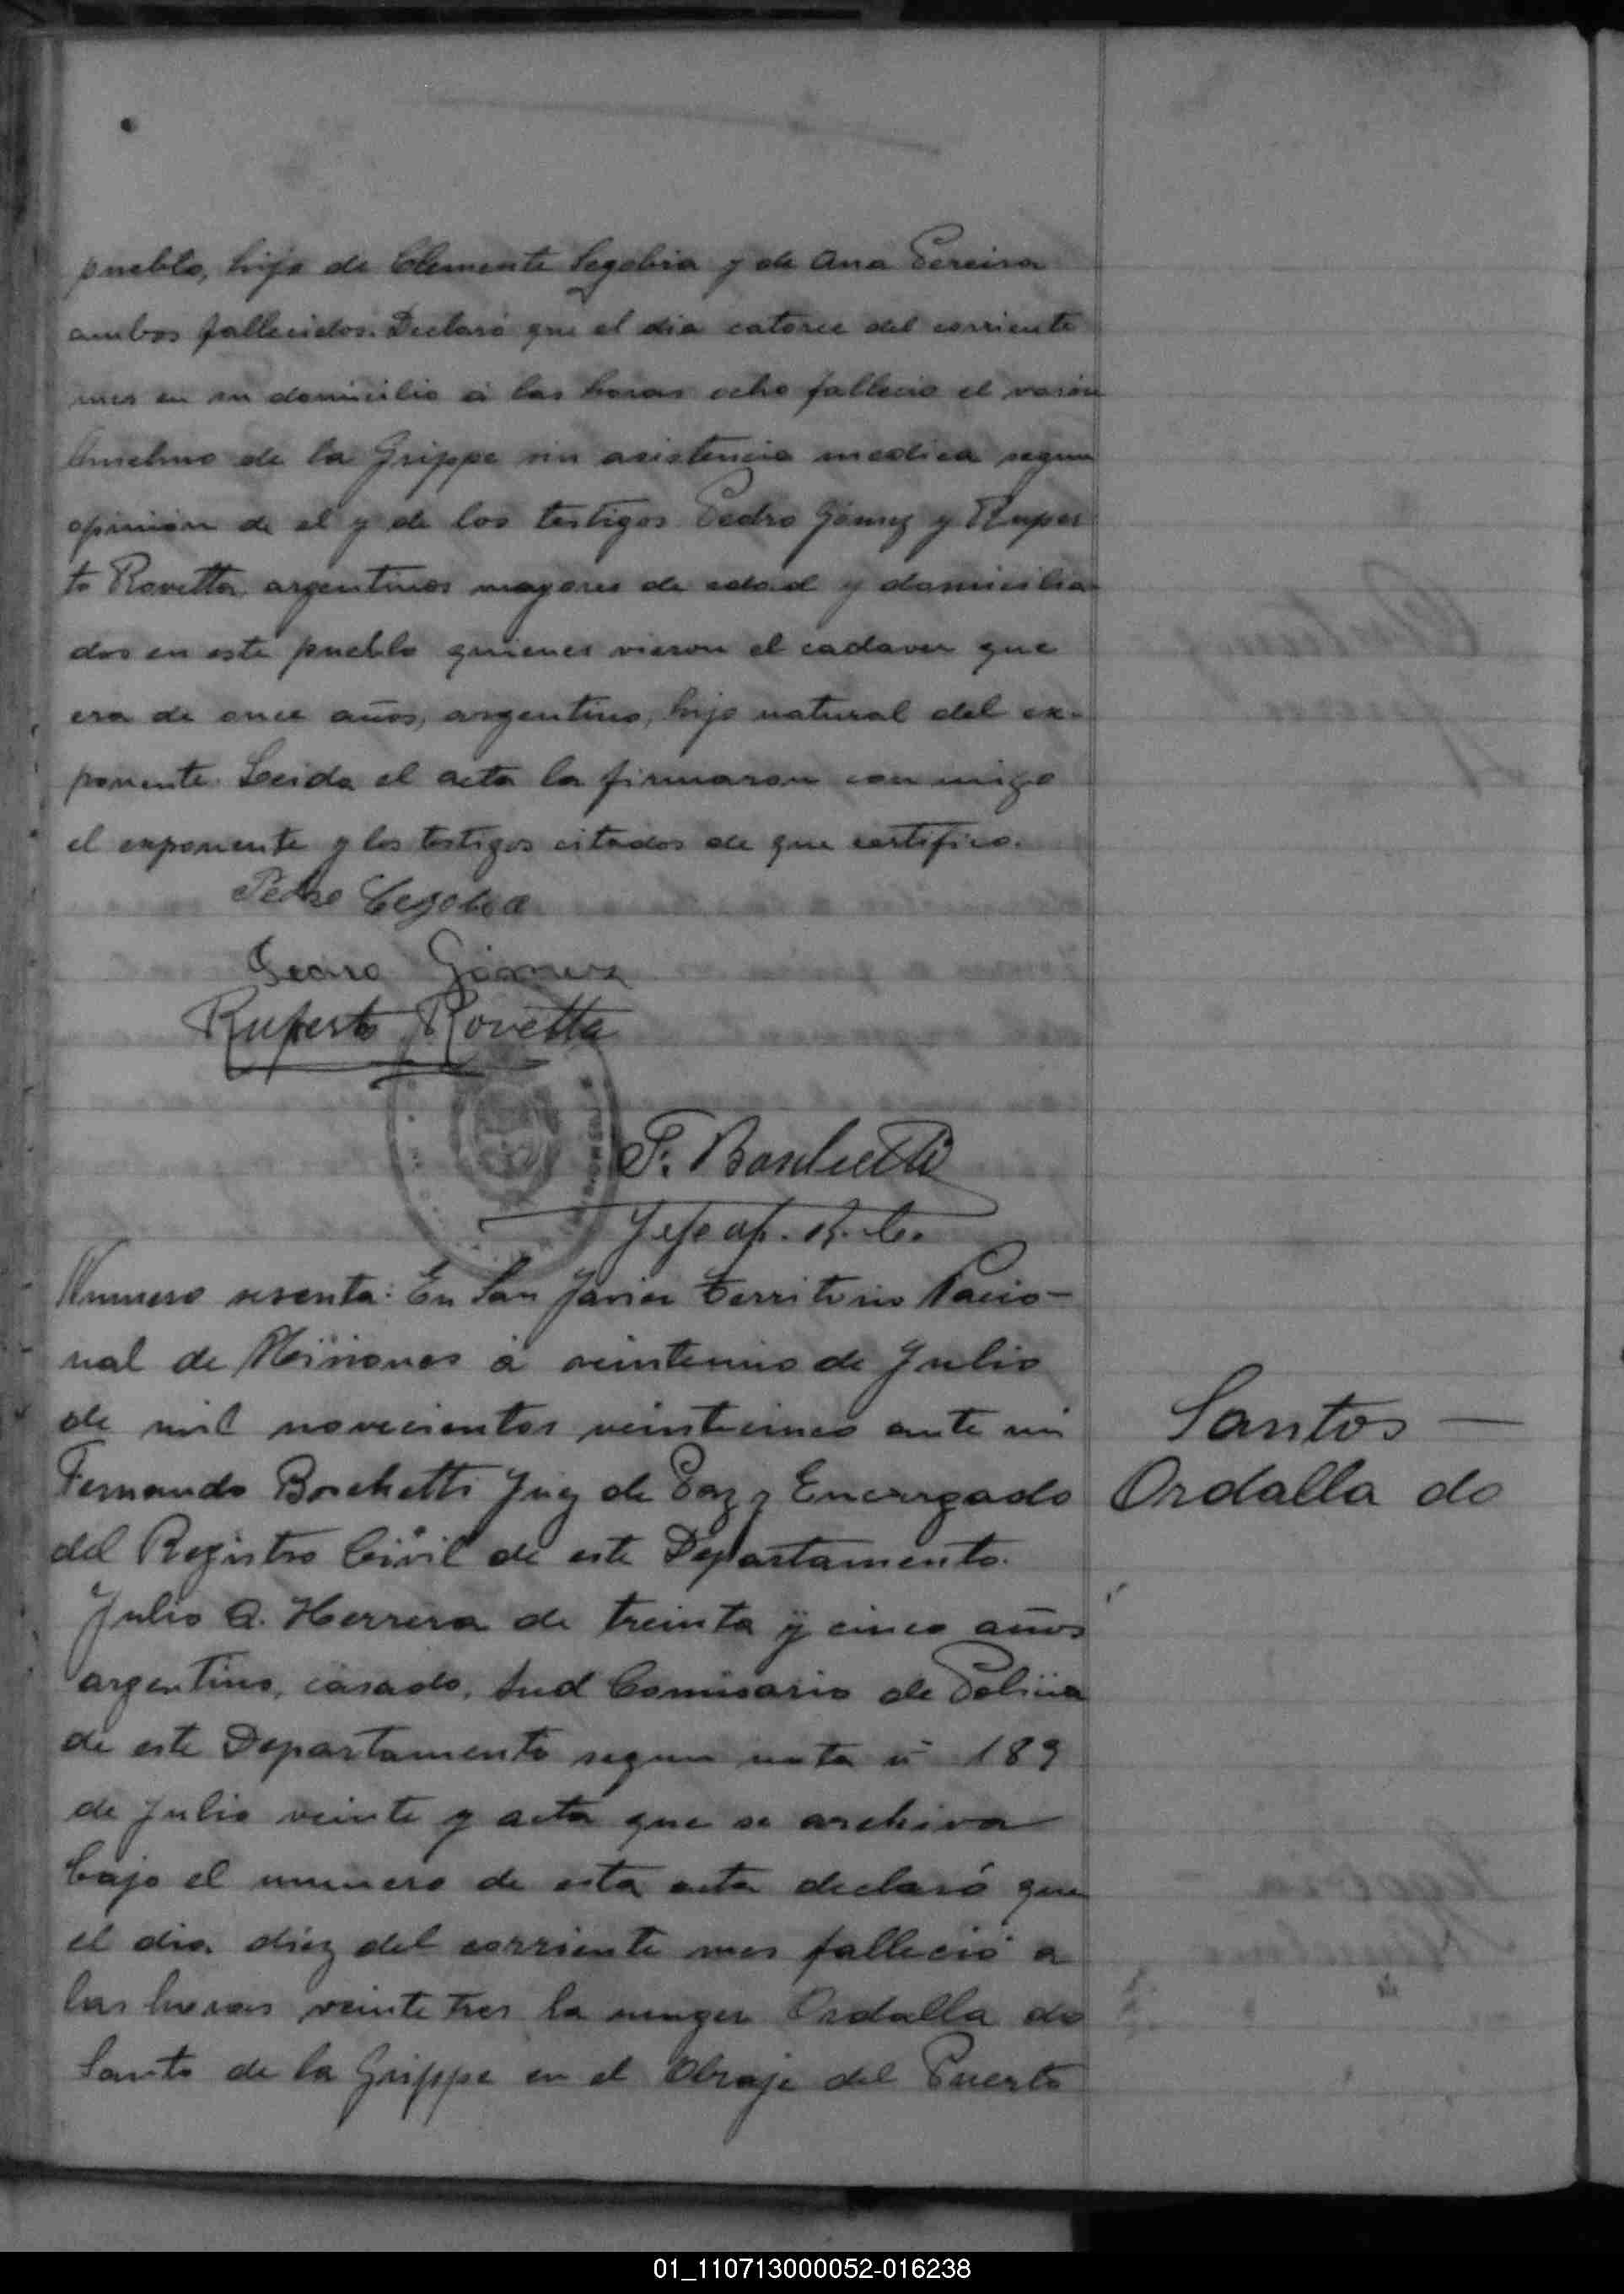 pueblo, hijo de Clemente Segobia y de Ana Pereira
ambos fallecidos. Declaró que el dia catorce del corriente
mes en su domicilio á las horas ocho fallecio el varón
Anselmo de la Grippe sin asistencia medica segun
opinión de el y de los testigos Pedro Gómez y Ruper
to Rovetta argentinos mayores de edad y domicilia
dos en este pueblo quienes vieron el cadaver que
era de once años, argentino, hijo natural del ex-
ponente. Leida el acta la firmaron con migo
el exponente y los testigos citados de que certifico.
Pedro Cegobia
Pedro Gómez
Ruperto Rovetta
F. Boschetti
Jefe of. R. C.
Numero sesenta: En San Javier Territorio Nacio-
nal de Misiones á veintiuno de Julio
de mil novecientos veinticinco ante mi
Fernando Boschetti Juez de Paz y Encargado
del Registro Civil de este Departamento.
Julio A. Herrera de treinta y cinco años
argentino, casado, Sud Comisario de Policia
de este Departamento segun nota n 189
de Julio veinte y acta que se archiva
bajo el numero de esta acta declaró que
el dia diez del corriente mes falleció a
las horas veinte tres la muger Ordalla do
Santo de la Grippe en el Obraje del Puerto
Santos —
Ordalla do
01_110713000052-016238